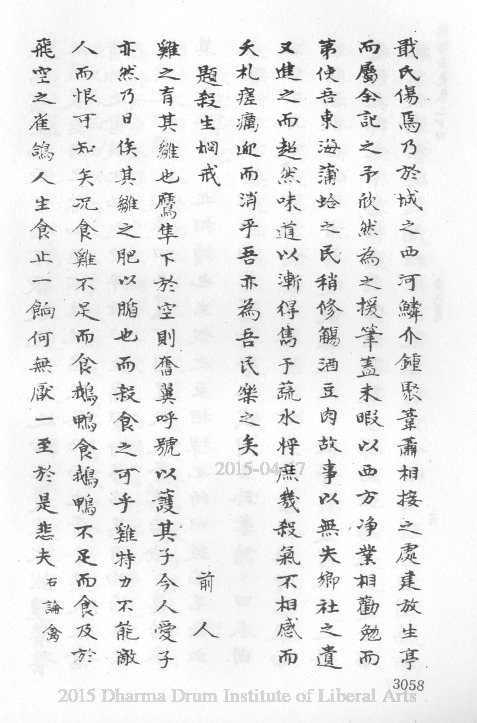 戢氏傷焉乃於城之西河鱗介鍾聚葦蕭相接之處建放生亭
而屬余記之予欣然為之援筆蓋未暇以西方净業相勸勉而
第使吾東海蒲蛤之民稍修觴酒豆肉故事以無失鄉社之遺
又進之而超然味道以漸得雋于蔬水將庶幾殺氣不相感而
夭札瘥癘迎而消乎吾亦為吾民樂之矣
題殺生炯戒
前人
雞之育其雛也鷹隼下於空則奮翼呼號以護其子今人愛子
亦然乃日俟其雛之肥以腯也而殺食之可乎雞特力不能敵
人而恨可知矣况食雞不足而食鵝鴨食鵝鴨不足而食及於
飛空之雀鴿人生食止一餉何無厭一至於是悲夫 右論禽
3058
2015-04-17
2015 Dharma Drum Institute of Liberal Arts